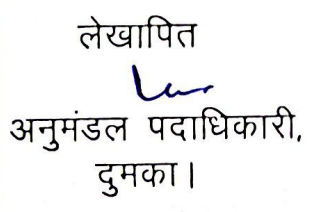 लेखापित
अनुमंडल पदाधिकारी,
दुमका।